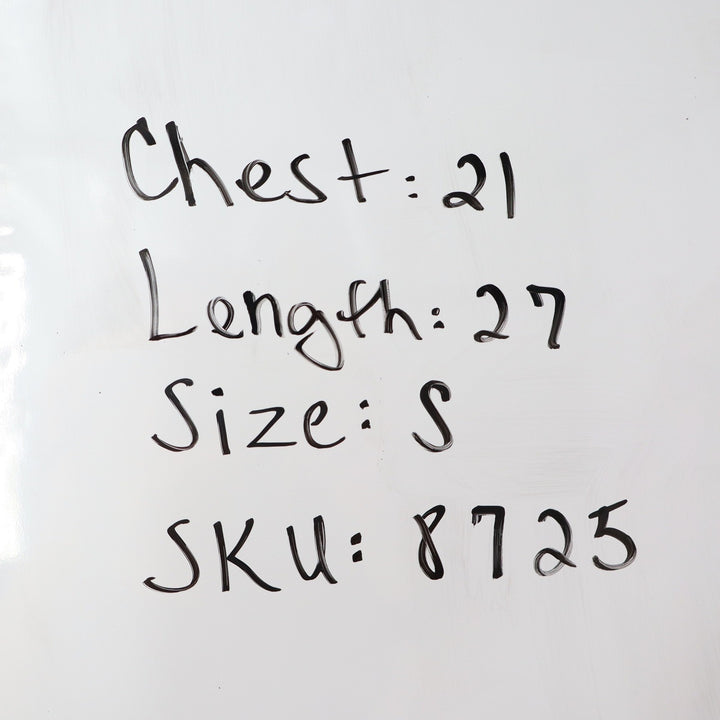 Chest: 21
Length: 27
Size: S
SKU: 8725